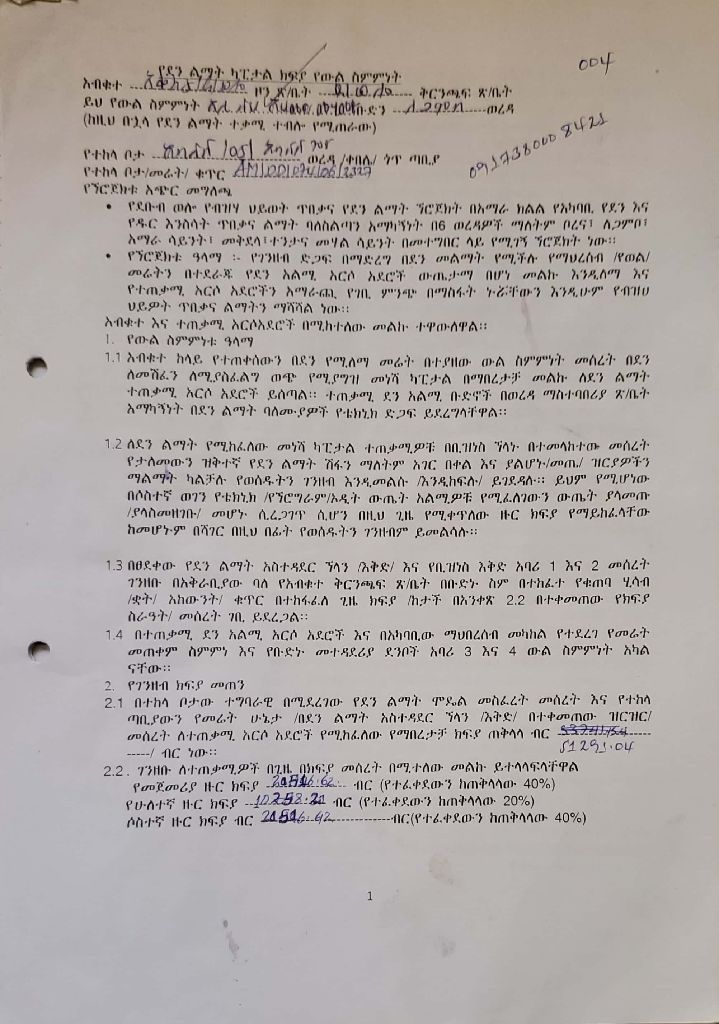 004
የደን ልማት ካፒታል ክፍያ የውል ስምምነት
አብቁተ ዞን ጽ/ቤት ቅርንጫፍ ጽ/ቤት
ይህ የውል ስምምነት ቡድን ወረዳ
(ከዚህ በኋላ የደን ልማት ተቃሚ ተብሎ የሚጠራው)
091738000 8421
የተከላ ቦታ /05/ ወረዳ /ቀበሌ/ ጎጥ ጣቢያ
የተከላ ቦታ/መሬት/ ቁጥር AM/DD/074/06/2327
የኘሮጀክቱ አጭር መግለጫ
• የደቡብ ወሎ የብዝሃ ህይወት ጥበቃና የደን ልማት ኘሮጀክት በአማራ ክልል የአካባቢ የደን እና
የዱር እንስሳት ጥበቃና ልማት ባለስልጣን አማካኝነት በ6 ወረዳዎች ማለትም ቦረና፣ ለጋምቦ፣
አማራ ሳይንት፣ መቅደላ፣ተንታና መሃል ሳይንት በመተግበር ላይ የሚገኝ ኘሮጀክት ነው፡፡
• የኘሮጀክቱ ዓላማ ፡- የገንዘብ ድጋፍ በማድረግ በደን መልማት የሚችሉ የማህረሰብ /የወል/
መሬትን በተደራጁ የደን አልሚ አርሶ አደሮች ውጤታማ በሆነ መልኩ እንዲለማ እና
የተጠቃሚ አርሶ አደሮችን አማራጪ የገቢ ምንጭ በማስፋት ኑሯቸውን እንዲሁም የብዝሀ
ህይዎት ጥበቃና ልማትን ማሻሻል ነው፡፡
አብቁተ እና ተጠቃሚ አርሶአደሮች በሚከተለው መልኩ ተዋውለዋል፡፡
1. የውል ስምምነቱ ዓላማ
1.1 አብቁተ ከላይ የተጠቀሰውን በደን የሚለማ መሬት በተያዘው ውል ስምምነት መሰረት በደን
ለመሸፈን ለሚያስፈልግ ወጭ የሚያግዝ መነሻ ካፒታል በማበረታቻ መልኩ ለደን ልማት
ተጠቃሚ አርሶ አደሮች ይሰጣል፡፡ ተጠቃሚ ደን አልሚ ቡድኖች በወረዳ ማስተባበሪያ ጽ/ቤት
አማካኝነት በደን ልማት ባለሙያዎች የቴክኒክ ድጋፍ ይደረግላቸዋል፡፡
1.2 ለደን ልማት የሚከፈለው መነሻ ካፒታል ተጠቃሚዎቹ በቢዝነስ ኘላኑ በተመላከተው መሰረት
የታለመውን ዝቅተኛ የደን ልማት ሽፋን ማለትም አገር በቀል እና ያልሆኑ/መጤ/ ዝርያዎችን
ማልማት ካልቻሉ የወሰዱትን ገንዘብ እንዲመልሱ /እንዲከፍሉ/ ይገደዳሉ፡፡ ይህም የሚሆነው
በሶስተኛ ወገን የቴክኒክ /የኘሮግራም/ኦዲት ውጤት አልሚዎቹ የሚፈለገውን ውጤት ያላመጡ
/ያላስመዘገቡ/ መሆኑ ሲረጋገጥ ሲሆን በዚህ ጊዜ የሚቀጥለው ዙር ክፍያ የማይከፈላቸው
ከመሆኑም በሻገር በዚህ በፊት የወሰዱትን ገንዘብም ይመልሳሉ፡፡
1.3 በፀደቀው የደን ልማት አስተዳደር ኘላን /እቅድ/ እና የቢዝነስ እቅድ አባሪ 1 እና 2 መሰረት
ገንዘቡ በአቅራቢያው ባለ የአብቁተ ቅርንጫፍ ጽ/ቤት በቡድኑ ስም በተከፈተ የቁጠባ ሂሳብ
/ቋት/ አካውንት/ ቁጥር በተከፋፈለ ጊዜ ክፍያ /ከታች በአንቀጽ 2.2 በተቀመጠው የክፍያ
ስራዓት/ መሰረት ገቢ ይደረጋል፡፡
1.4 በተጠቃሚ ደን አልሚ አርሶ አደሮች እና በአካባቢው ማህበረሰብ መካከል የተደረገ የመሬት
መጠቀም ስምምነ እና የቡድኑ መተዳደሪያ ደንቦች አባሪ 3 እና 4 ውል ስምምነት አካል
ናቸው፡፡
2. የገንዘብ ክፍያ መጠን
2.1 በተከላ ቦታው ተግባራዊ በሚደረገው የደን ልማት ሞዴል መስፈረት መሰረት እና የተከላ
ጣቢያውን የመሬት ሁኔታ /በደን ልማት አስተዳደር ኘላን /እቅድ/ በተቀመጠው ዝርዝር/
መሰረት ለተጠቃሚ አርሶ አደሮች የሚከፈለው የማበረታቻ ክፍያ ጠቅላላ ብር
------/ ብር ነው፡፡ 51291.04
2.2. ገንዘቡ ለተጠቃሚዎች በጊዜ በክፍያ መሰረት በሚተለው መልኩ ይተላላፍላቸዋል
የመጀመሪያ ዙር ክፍያ ብር (የተፈቀደውን ከጠቅላላው 40%)
የሁለተኛ ዙር ክፍያ ብር (የተፈቀደውን ከጠቅላላው 20%)
ሶስተኛ ዙር ክፍያ ብር ብር(የተፈቀደውን ከጠቅላላው 40%)
1